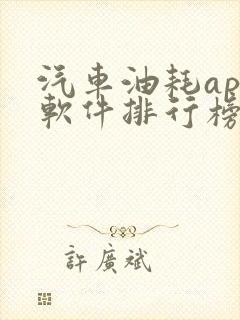 汽車油耗ap
軟件排行榜
許廣斌